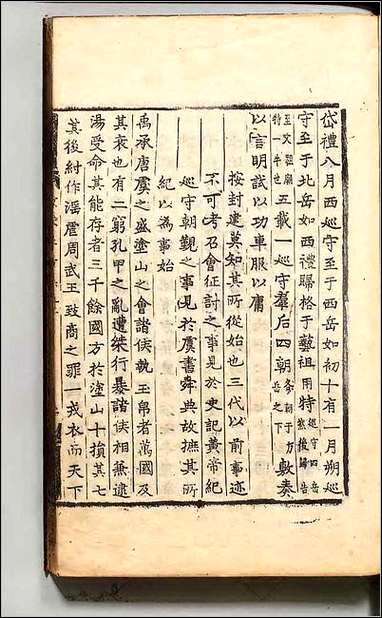 岱禮八月西巡守至于西岳如初十有一月朔巡
守至于北岳如西禮歸格于藝祖用特巡守四岳然後歸告
至文祖廟特一牛也五載一巡守羣后四朝各朝于方岳之下敷奏
以言明試以功車服以庸
按封建莫知其所從始也三代以前事迹
不可考召會征討之事見於史記黃帝紀
巡守朝覲之事見於虞書舜典故摭其所
紀以為事始
禹承唐虞之盛塗山之會諸侯執玉帛者萬國及
其衰也有二窮孔甲之亂遭桀行暴諸侯相兼逮
湯受命其能存者三千餘國方於塗山十損其七
其後紂作淫虐周武王致商之罪一戎衣而天下